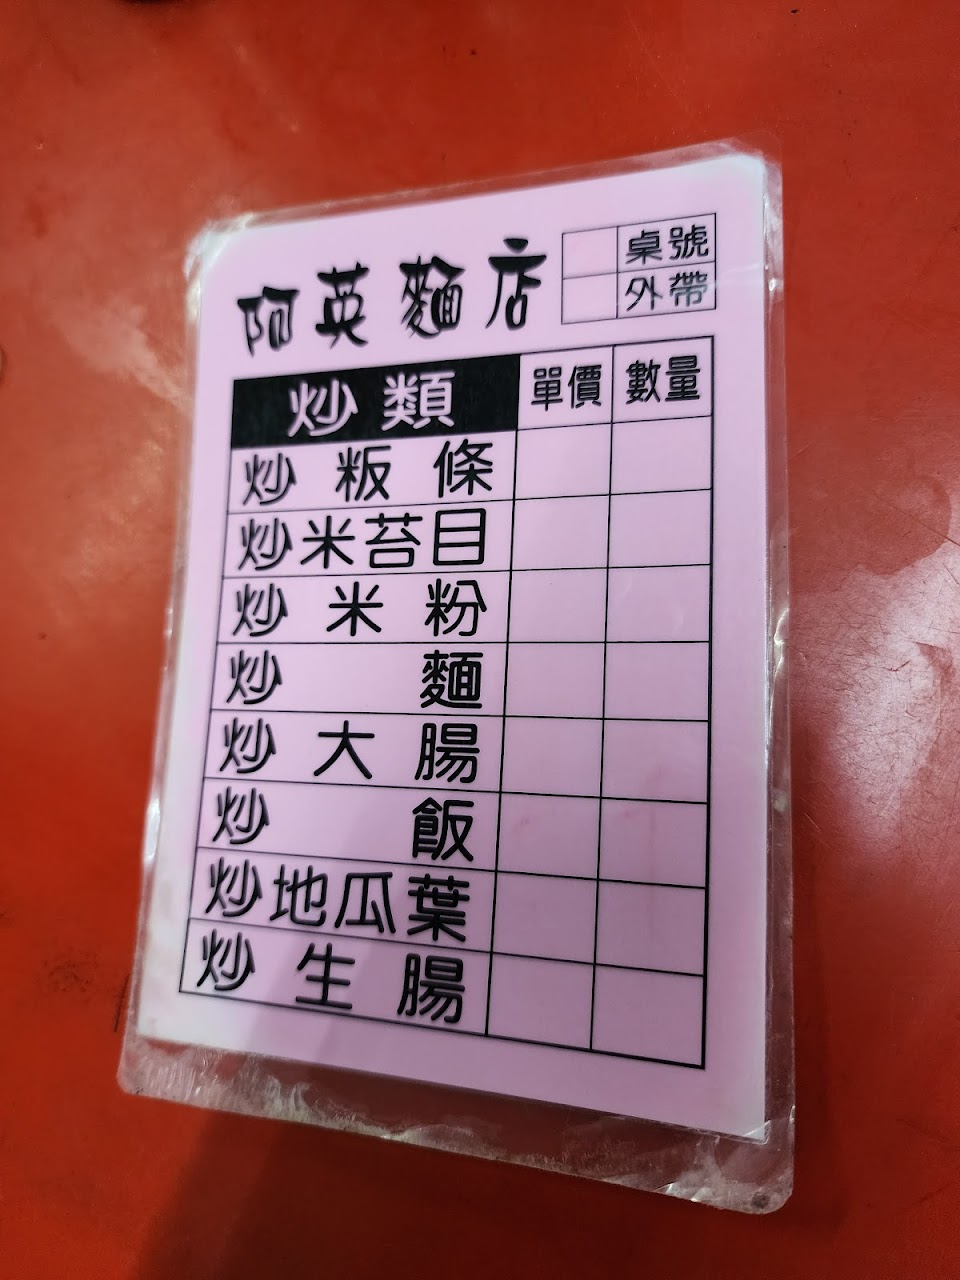 阿英麵店
桌號
外帶
炒類 單價 數量
炒粄條
炒米苔目
炒米粉
炒麵
炒大腸
炒飯
炒地瓜葉
炒生腸